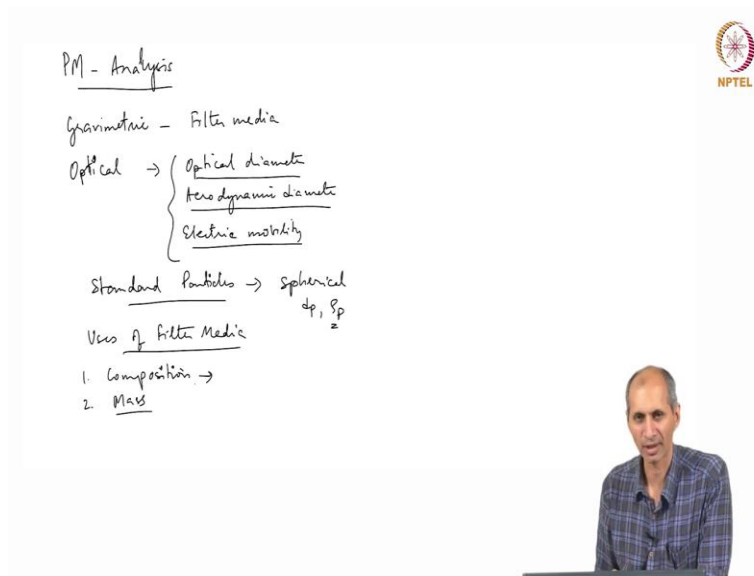 PM - Analysis
NPTEL
Gravimetric - Filter media
Optical → Optical diamete
Aerodynamic diamete
Electric mobility
Standard Particles → Spherical
dp, ρp
Uses of Filter Media
1. Composition →
2. Mass